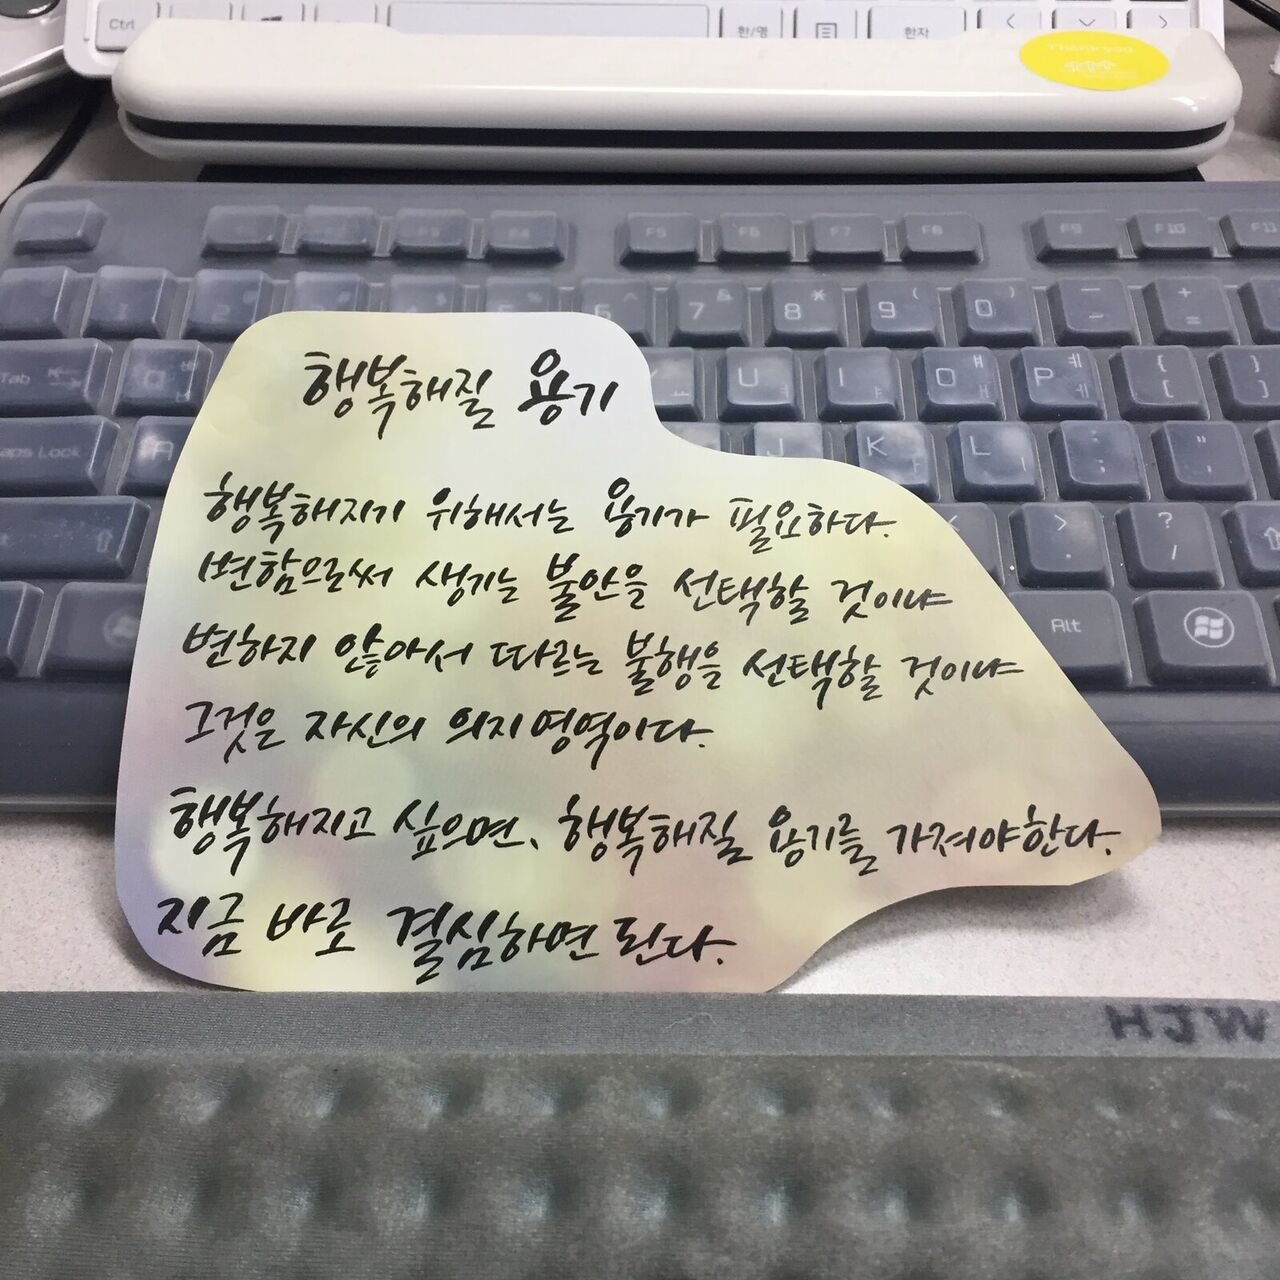 Ctrl
한/영
한자
Thank you
F5
F6
F7
F8
F9
F10
F11
6 ^
7 &
8 *
9 (
0 )
- _
= +
Tab
U
I ㅑ
O ㅐ ㅒ
P ㅔ ㅖ
[ {
] }
Caps Lock
A
J
K ㅏ
L ㅣ
; :
' "
. >
/ ?
Alt
행복해질 용기
행복해지기 위해서는 용기가 필요하다.
변함으로써 생기는 불안을 선택할 것이냐
변하지 않아서 따르는 불행을 선택할 것이냐
그것은 자신의 의지영역이다.
행복해지고 싶으면, 행복해질 용기를 가져야한다.
지금 바로 결심하면 된다.
HJW